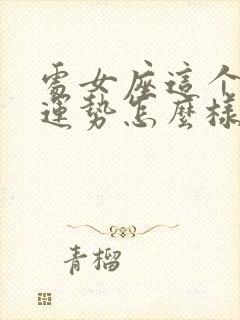 處女座這个
運勢怎麼樣
青榴